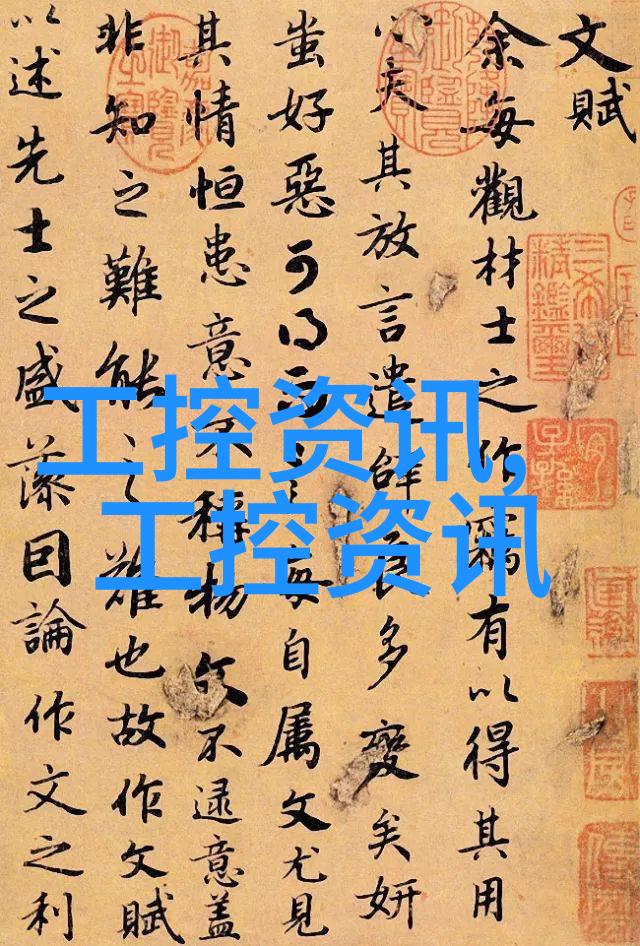 文賦
余每觀材士之作竊有以得其用
心夫其放言遣辭良多變矣妍
蚩好惡可得而言每自属文尤見
其情恒患意不稱物文不逮意盖
非知之難能之難也故作文賦
以述先士之盛藻因論作文之利
工控资讯,
工控资讯
三希堂精鑑璽
宜子孫